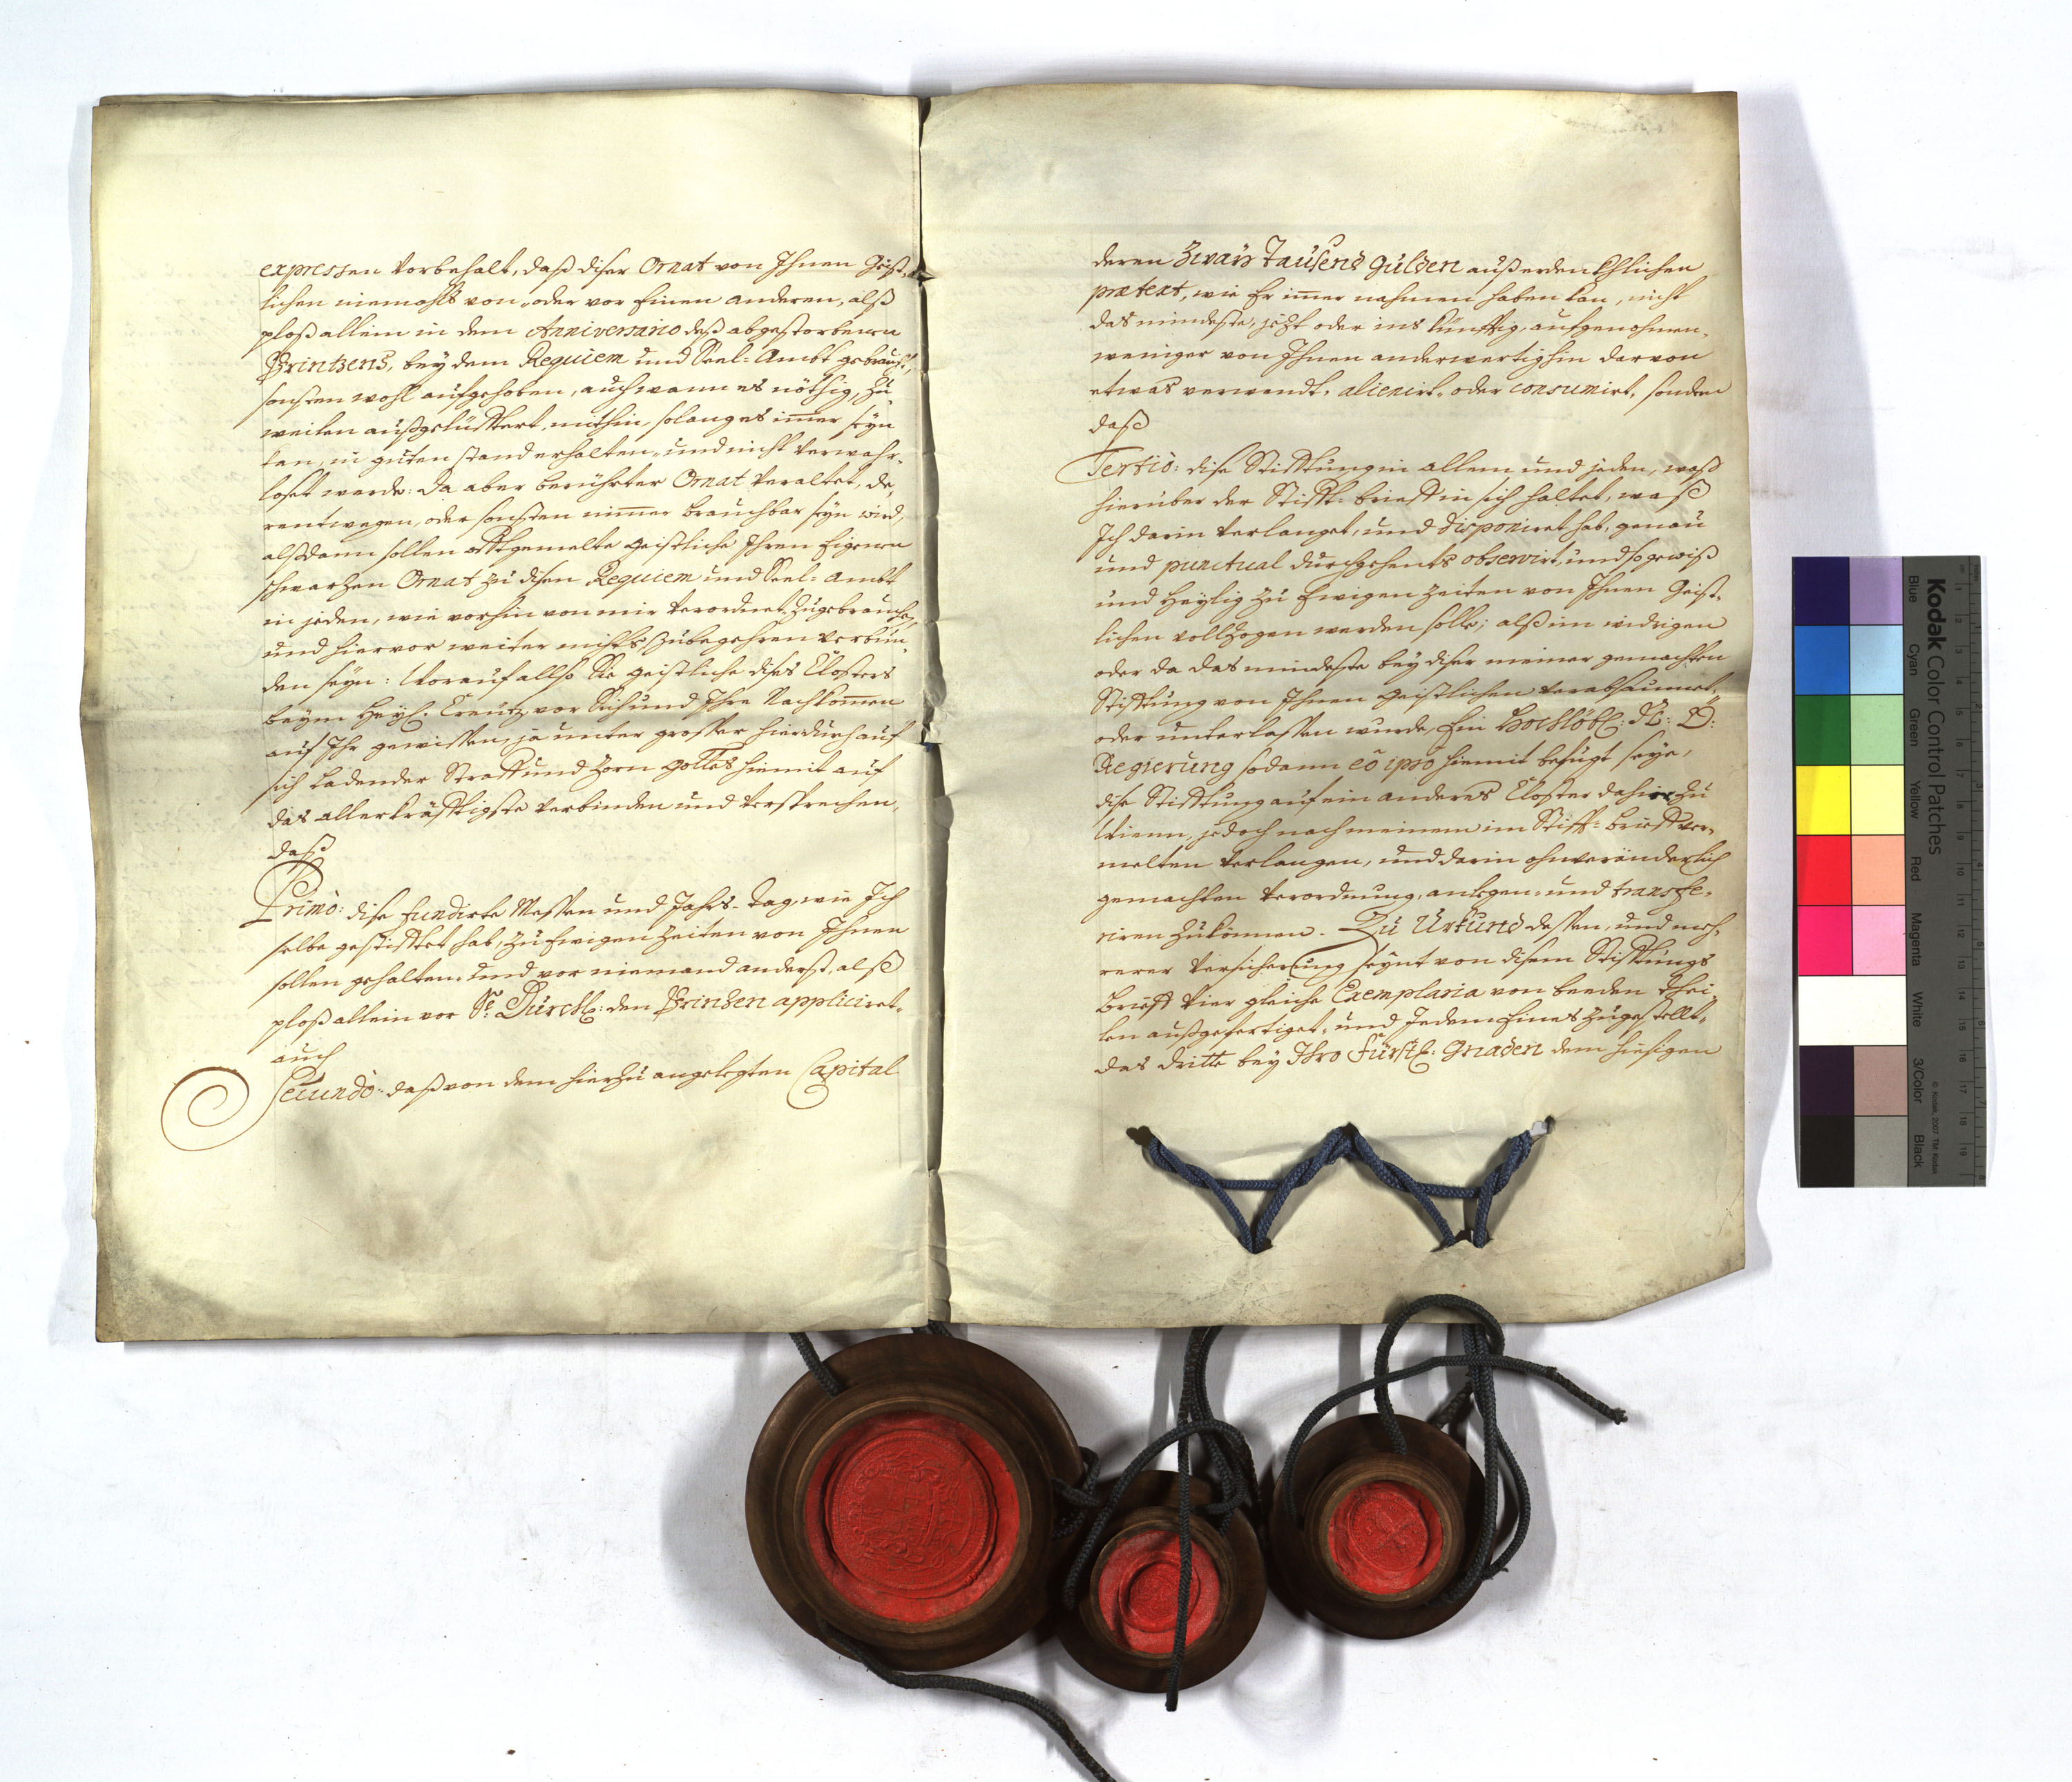 expressen Vorbehalt, daß diser Ornat von Ihnen Geist-
lichen niemahls von- oder vor Einen anderen, alß
ploß allein in dem Anniversario deß abgestorbenen
Printzens, bey dem Requiem und Seel-Ambt gebraucht,
sonsten wohl aufgehoben, auch wann es nöthig, zu-
weilen außgelüfftert, mithin, solang es immer seyn
kan, in guten stand erhalten- und nicht verwahr-
loset werde: da aber berührter Ornat veraltet, de-
rentwegen, oder sonsten nimmer brauchbar seyn wird,
alßdann sollen offtgemelte Geistliche Ihren Eigenen
schwarzen Ornat zu disen Requiem und Seel-Ambt
in jeden, wie vorhin von mir verordnet zugebrauchen,
und hiervor weiter nichts zubegehren verbun-
den seyn: Worauf allso die Geistliche dises Closters
beym Heyl: Creutz vor Sich und Ihre Nachkommen
auf Ihr gewissen, ja unter grosser hierdurch auf
sich ladender Straff und Zorn Gottes hiemit auf
das allerkräfftigste verbinden und versprechen,
daß
Primò: dise fundirte Messen und Jahrs-tag, wie Ich
selbe gestifftet hab, zu Ewigen Zeiten von Ihnen
sollen gehalten- und vor niemand anderst, alß
ploß allein vor Sr Durchl: den Printzen appliciret-
auch
Secundò: daß von dem hierzu angelegten Capital
deren Zway Tausend Gulden außer den Ehlichen
prætext, wie Er immer nahmen haben kan, nicht
das mindeste, jezt oder ins künfftig, aufgenohmen,
weniger von Ihnen anderwertighin darvon
etwas verwendt- alienirt- oder consumirt, sondern
daß
Tertiò: dise Stifftung in allem und jeden, waß
hierüber der Stifft-brieff in sich haltet, waß
Ich darin verlanget, und disponiret hab, genau
und punctual durchgehents observirt, und so gewiß
und Heylig zu Ewigen Zeiten von Ihnen Geist-
lichen vollzogen werden solle; alß im widrigen
oder da das mindeste bey diser meiner gemachten
Stifftung von Ihnen Geistlichen verabsaumet-
oder unterlassen wurde, Ein Hochlöbl: N: Ö:
Regierung sodann eò ipsò hiemit befugt seye,
dise Stifftung auf ein anderes Closter dahier zu
Wienn, jedoch nach meinem im Stifft-brieff ver-
melten verlangen, und darin ohnveränderlich
gemachten verordnung, anlegen- und transfe-
riren zukönnen. Zu Urkund dessen, und meh-
rerer Versicherung seynt von disem Stifftungs
brieff Vier gleiche Exemplaria von beeden thei-
len außgefertiget- und Jedem Eines zugestellt-
das dritte bey Ihro Fürstl: Gnaden dem hiesigen
Kodak Color Control Patches
Blue Cyan Green Yellow Red Magenta White 3/Color Black
© Kodak, 2007 TM: Kodak